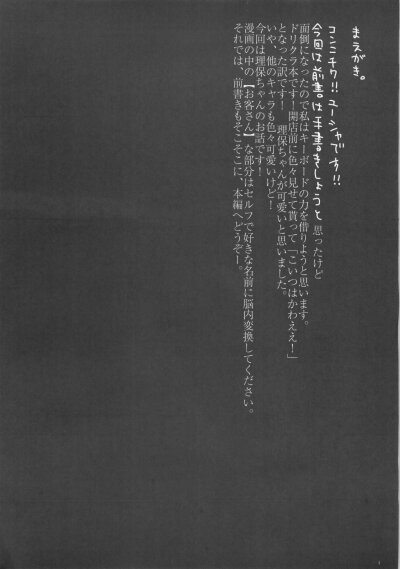 まえがき。
コンニチワ!!ユーシャです!!
今回は前書は手書きしようと思ったけど
面倒になったので私はキーボードの力を借りようと思います。
ドリクラ本です!開店前に色々見せて貰って「こいつはかわええ!」
となった訳です!理保ちゃんが可愛いと思いました。
いや、他のキャラも色々可愛いけど!
今回は理保ちゃんのお話です!
漫画の中の【お客さん】な部分はセルフで好きな名前に脳内変換してください。
それでは、前書きもそこそこに、本編へどうぞー。